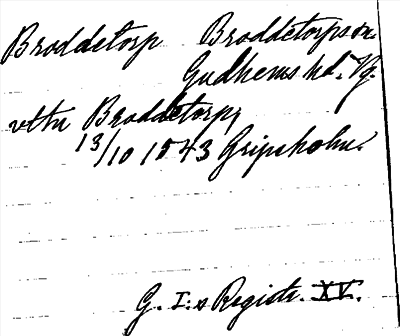 Broddetorp Broddetorps sn
Gudhems hd. Vg.
vttn Broddetorp,
13/10 1543 Gripsholm.
G. I:s Registr. XV.